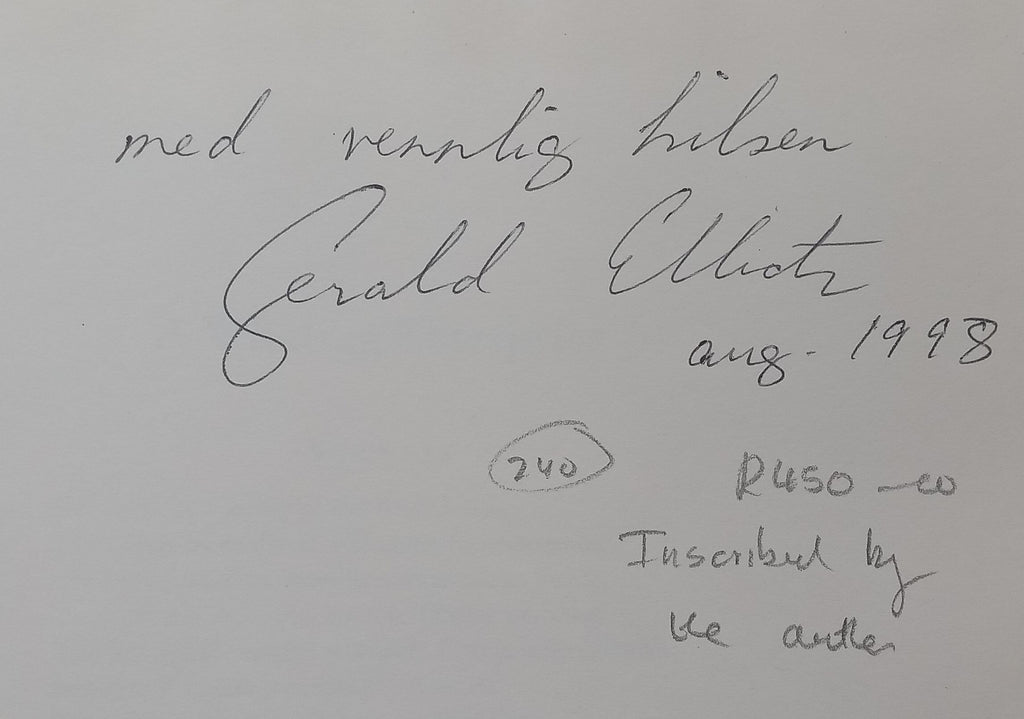 med vennlig hilsen
Gerald Elliot
aug. 1998
240
R450 -00
Inscribed by
the author